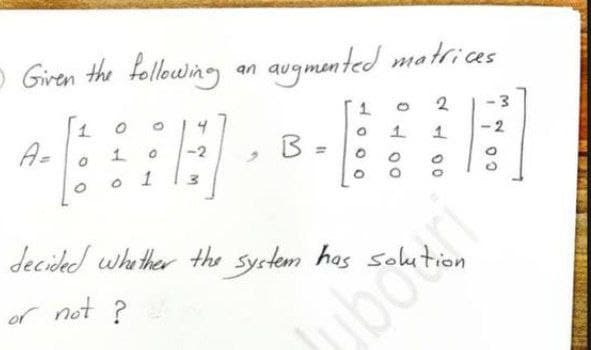 Given the following an augmented matrices
A = [ 1 0 0 | 4 ; 0 1 0 | -2 ; 0 0 1 | 3 ] , B = [ 1 0 2 | -3 ; 0 1 1 | -2 ; 0 0 0 | 0 ; 0 0 0 | 0 ]
decided whether the system has solution
or not ?